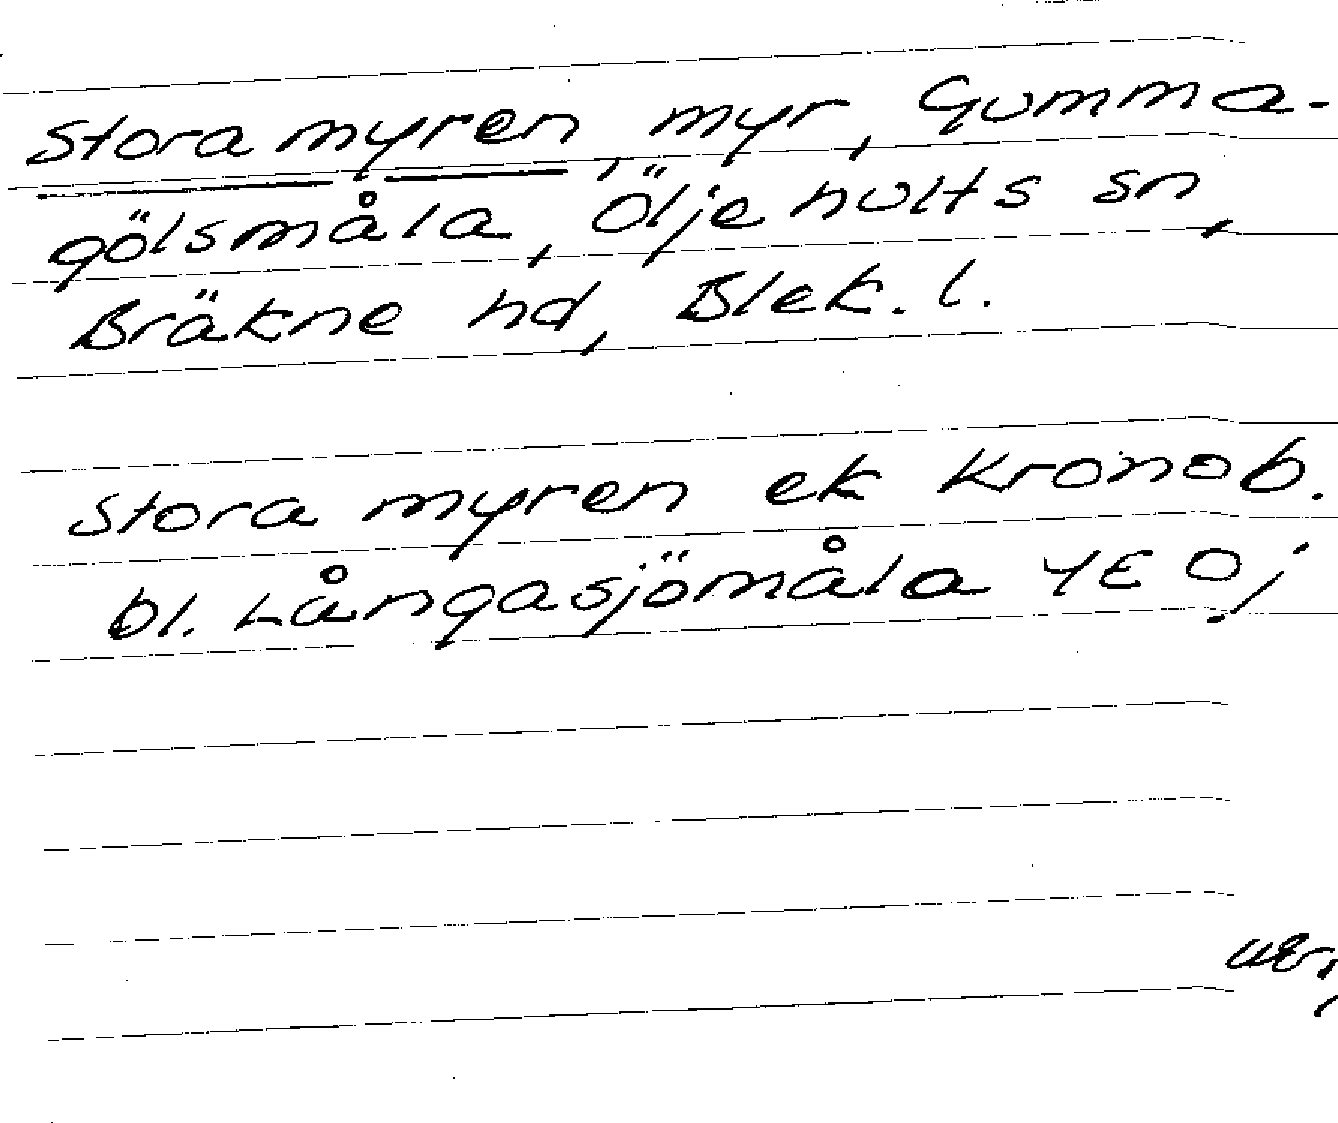 Stora myren, myr, Gumma-
gölsmåla, Öljehults sn,
Bräkne hd, Blek. l.
Stora myren ek Kronob.
bl. Långasjömåla 4E 0j